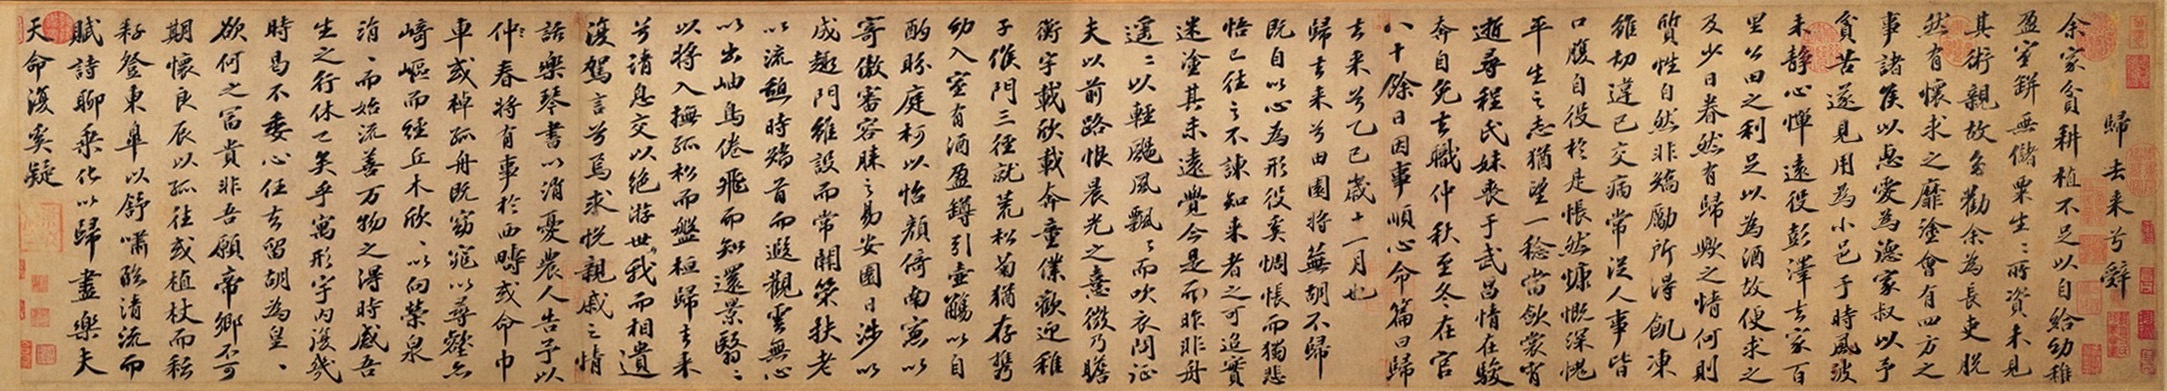 歸去来兮辭
余家貧耕植不足以自給幼稚
盈室缾無儲粟生〻所資未見
其術親故多勸余為長吏脱
然有懷求之靡塗會有四方之
事諸侯以惠愛為德家叔以予
貧苦遂見用為小邑于時風波
未静心憚遠役彭澤去家百
里公田之利足以為酒故便求之
及少日眷然有歸歟之情何則
質性自然非矯勵所得飢凍
雖切違己交病常從人事皆
口腹自役於是悵然慷慨深愧
平生之志猶望一稔當斂裳宵
逝尋程氏妹喪于武昌情在駿
奔自免去職仲秋至冬在官
八十餘日因事順心命篇曰歸
去来兮乙巳歲十一月也
歸去来兮田園將蕪胡不歸
既自以心為形役奚惆悵而獨悲
悟已往之不諫知来者之可追實
迷塗其未遠覺今是而昨非舟
遥〻以輕颺風飄〻而吹衣問征
夫以前路恨晨光之熹微乃瞻
衡宇載欣載奔童僕歡迎稚
子候門三徑就荒松菊猶存携
幼入室有酒盈罇引壺觴以自
酌眄庭柯以怡顔倚南窻以
寄傲審容膝之易安園日涉以
成趣門雖設而常關策扶老
以流憩時矯首而遐觀雲無心
以出岫鳥倦飛而知還景翳〻
以將入撫孤松而盤桓歸去来
兮請息交以絶游世我而相遺
復駕言兮焉求悦親戚之情
話樂琴書以消憂農人告予以
仲春將有事於西疇或命巾
車或棹孤舟既窈窕以尋壑亦
崎嶇而經丘木欣〻以向榮泉
涓〻而始流善万物之得時感吾
生之行休已矣乎寓形宇内復幾
時曷不委心任去留胡為皇〻
欲何之富貴非吾願帝鄉不可
期懷良辰以孤往或植杖而耘
耔登東臯以舒嘯臨清流而
賦詩聊乘化以歸盡樂夫
天命復奚疑